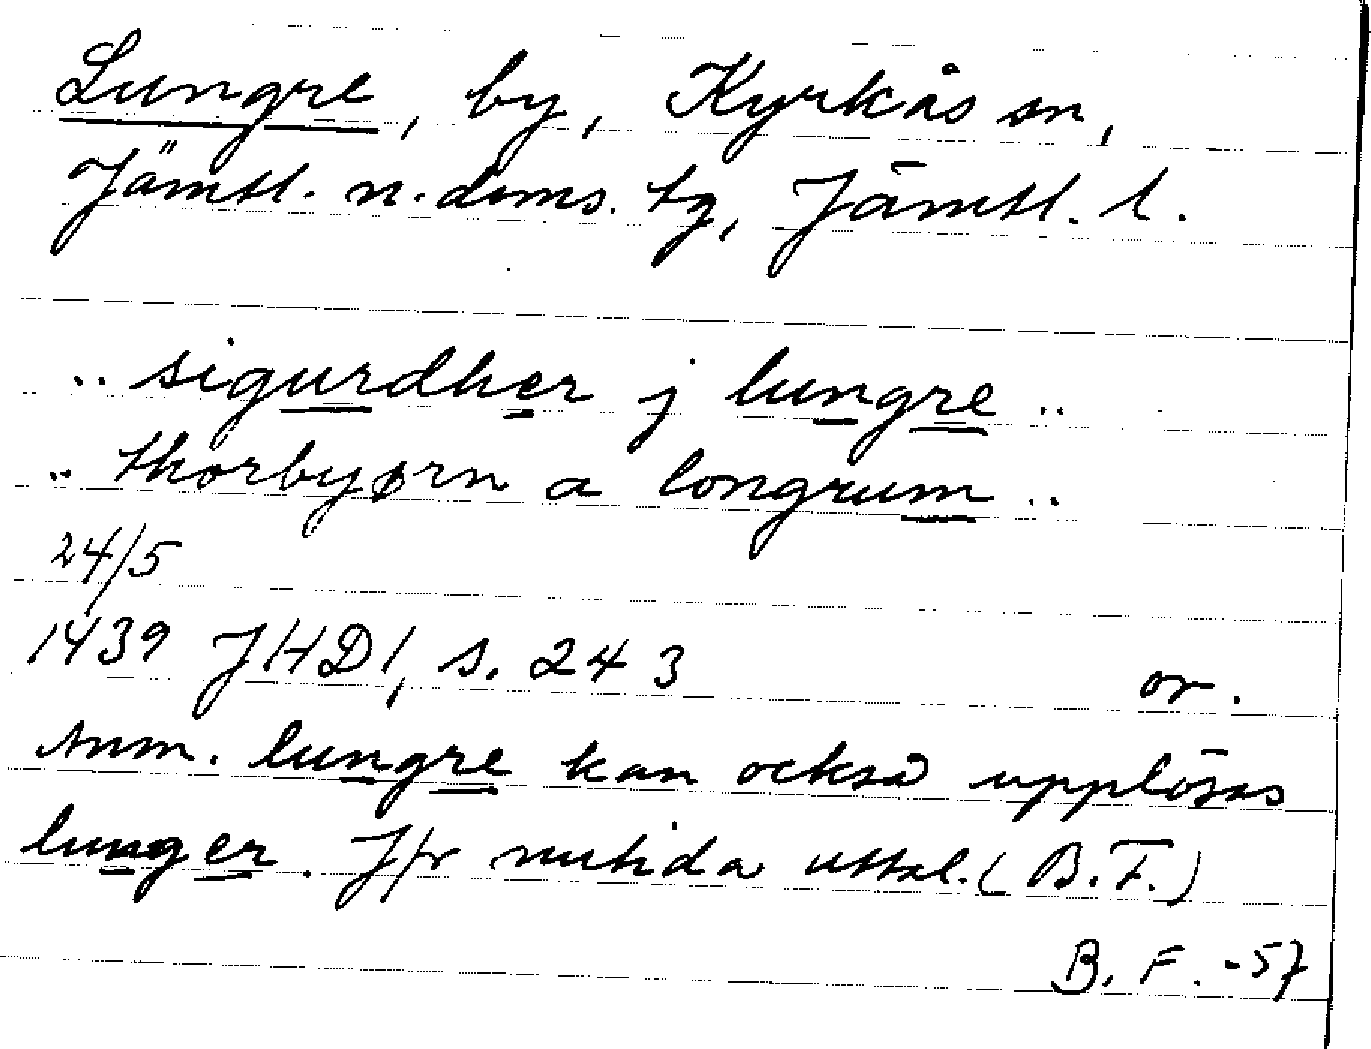 Lungre, by, Kyrkås sn,
Jämtl. n. doms. tg, Jämtl. l.
.. sigurdher j lungre ..
.. thorbyørn a longrum ..
24/5
1439 JHD1, s. 243 or.
Anm. lungre kan också upplösas
lunger. Jfr nutida uttal. (B.F.)
B. F. -57